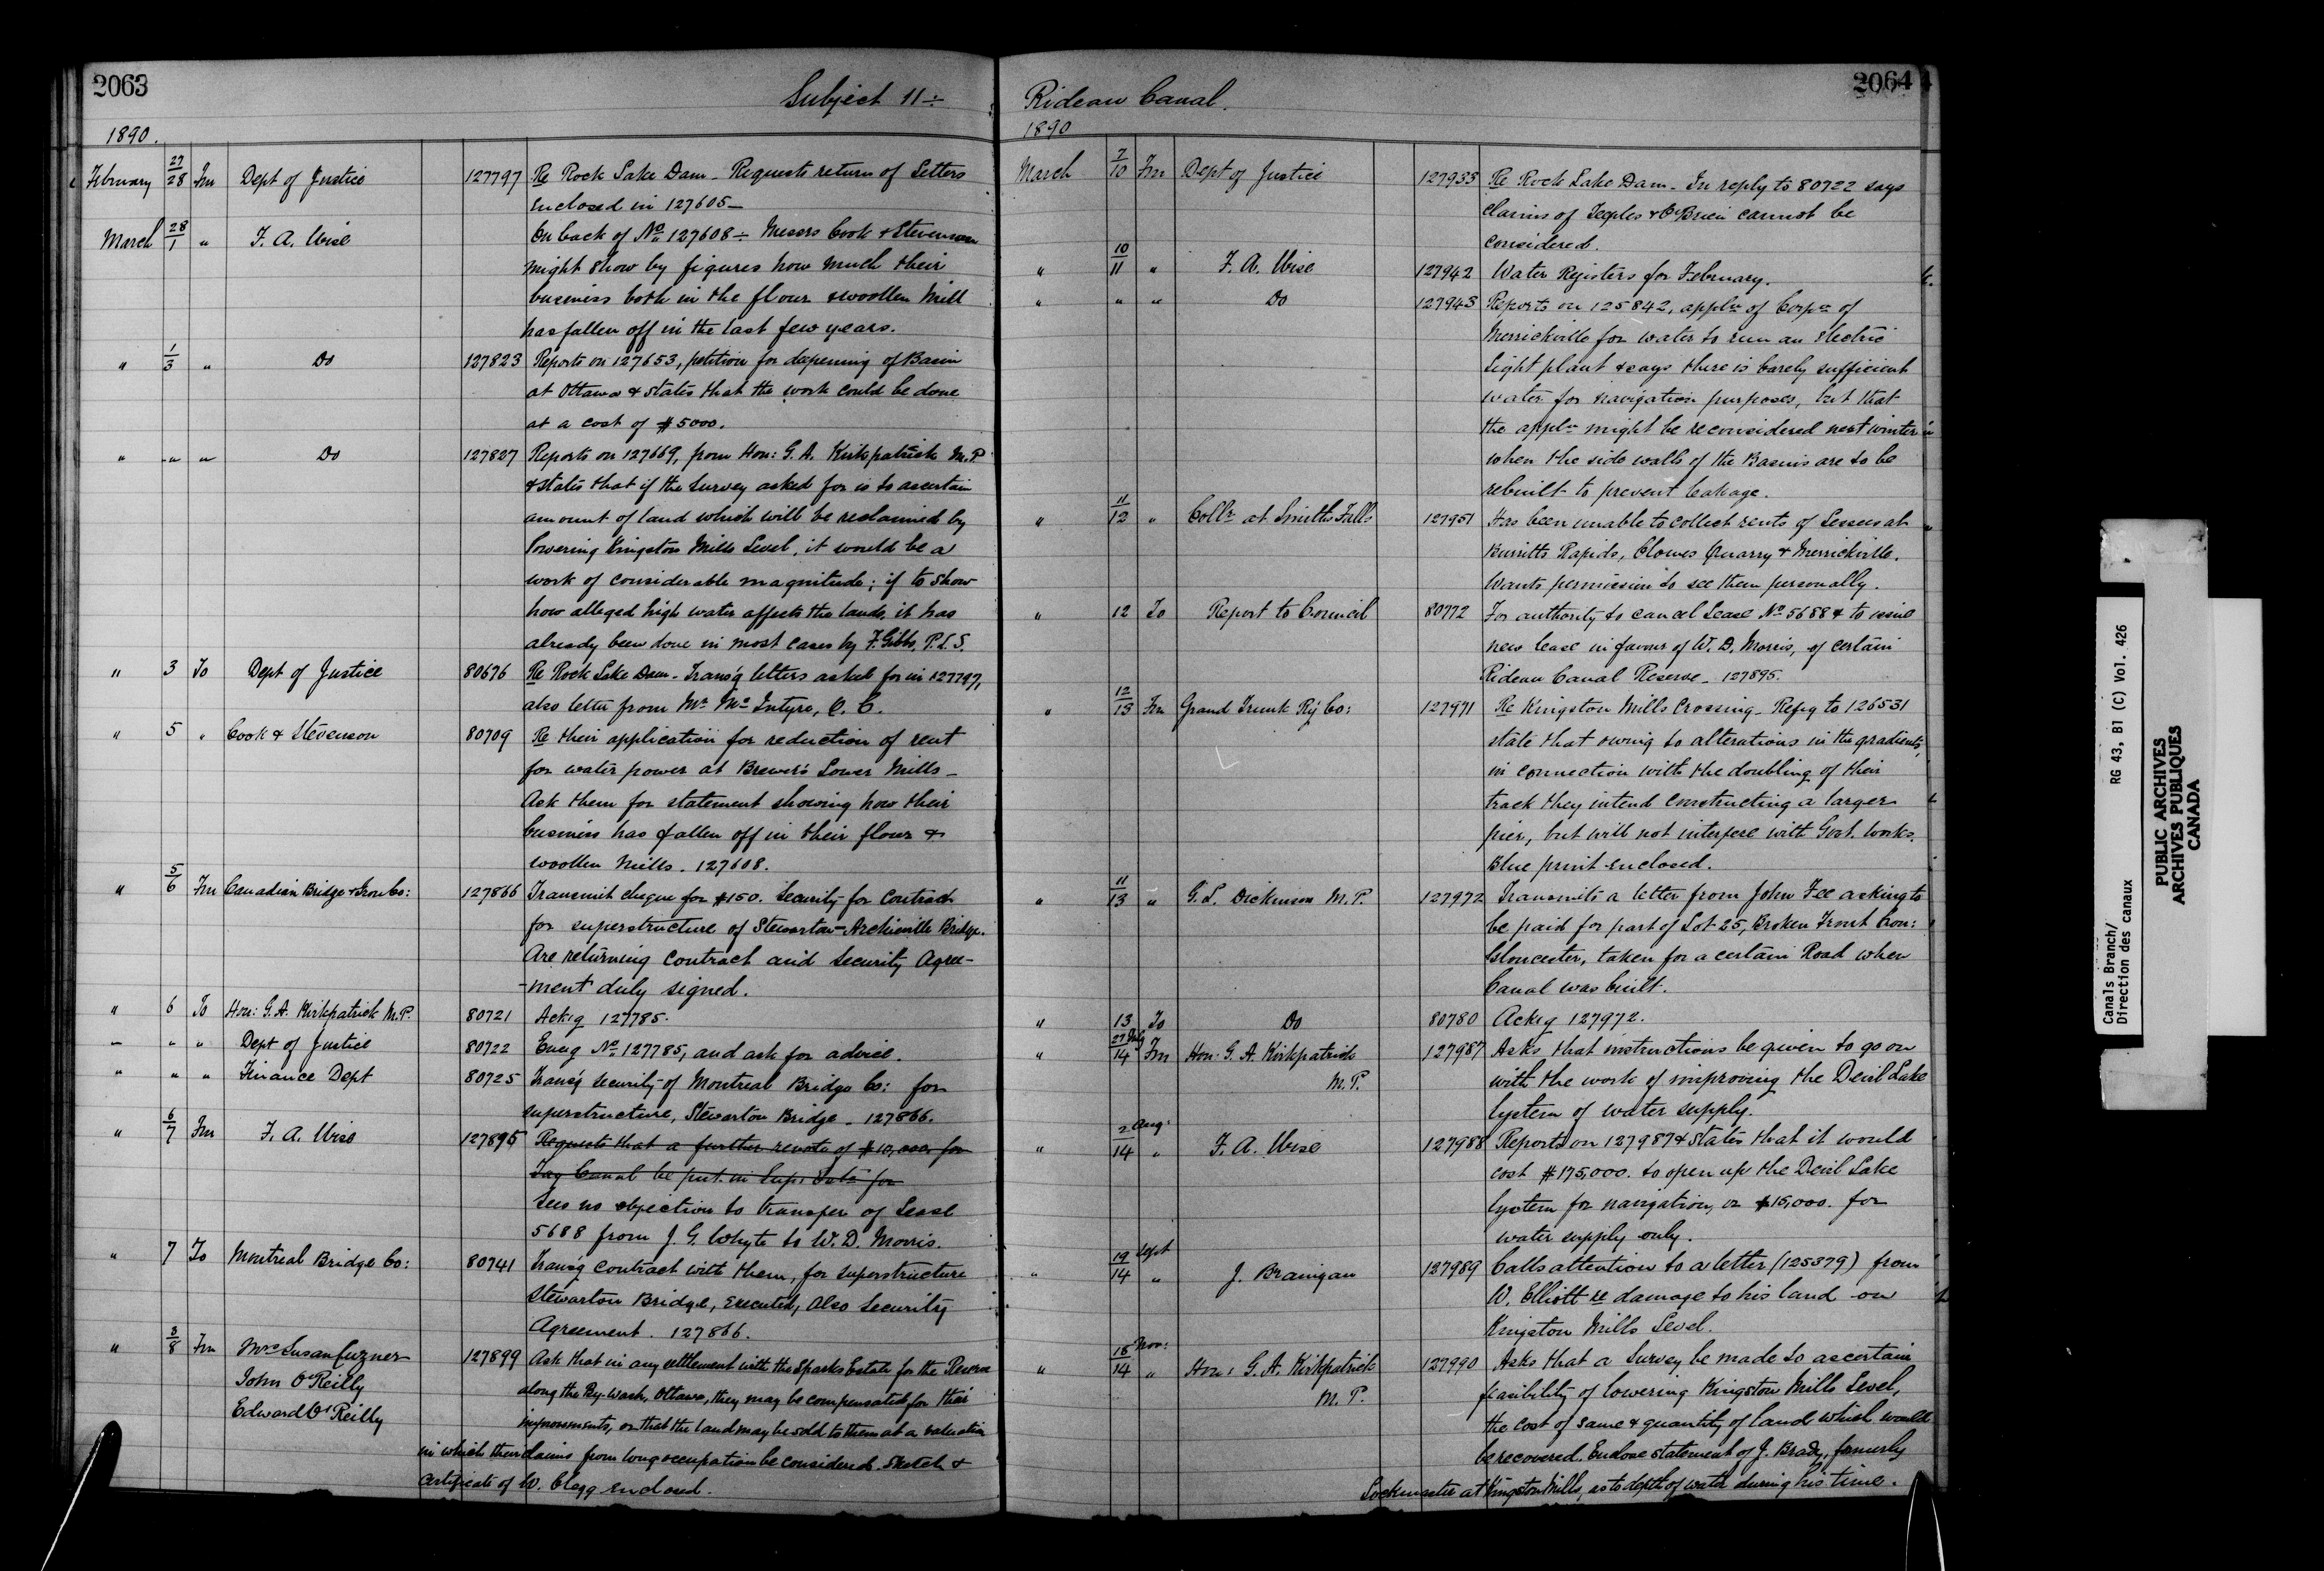 2063
Subject 11÷
1890.
February 27/28 Fm Dept of Justice 127797 Re Rock Lake Dam - Requests return of Letters
enclosed in 127605 -
March 28/1 " F. A. Wise On back of No. 127608 ÷ Messrs Cook & Stevenson
might show by figures how much their
business both in the flour & woollen Mill
has fallen off in the last few years.
" 1/3 " Do 127823 Reports on 127653, petition for deepening of Basin
at Ottawa & states that the work could be done
at a cost of $5000.
" " " Do 127827 Reports on 127669, from Hon: G. A. Kirkpatrick M.P.
& states that if the survey asked for is to ascertain
amount of land which will be reclaimed by
lowering Kingston Mills Level, it would be a
work of considerable magnitude; if to show
how alleged high water affects the lands, it has
already been done in most cases by F. Gibbs, P.L.S.
" 3 To Dept of Justice 80676 Re Rock Lake Dam - Trans'g letters asked for in 127797,
also letter from Mr McIntyre, Q.C.
" 5 " Cook & Stevenson 80709 Re their application for reduction of rent
for water power at Brewer's Lower Mills -
Ask them for statement showing how their
business has fallen off in their flour &
woollen mills. 127608.
" 5/6 Fm Canadian Bridge & Iron Co: 127866 Transmit cheque for $150. Security for Contract
for superstructure of Stewarton-Archieville Bridge.
Are returning contract and security Agree-
-ment duly signed.
" 6 To Hon: G. A. Kirkpatrick M.P. 80721 Ack'g 127785.
" " " Dept of Justice 80722 Encg No. 127785, and ask for advice.
" " " Finance Dept 80725 Trans'g security of Montreal Bridge Co: for
superstructure, Stewarton Bridge - 127866.
" 6/7 Fm F. A. Wise 127895 Requests that a further revote of $10,000 for
Tay Canal be put in Sup: Ests for
Sees no objection to transfer of Lease
5688 from J. G. Whyte to W. D. Morris.
" 7 To Montreal Bridge Co: 80741 Trans'g contract with them, for superstructure
Stewarton Bridge, executed, also Security
Agreement. 127866.
" 3/8 Fm Mrs Susan Cuzner 127899 Ask that in any settlement with the Sparks Estate for the Reserve
John O'Reilly along the By-Wash, Ottawa, they may be compensated for their
Edward O'Reilly improvements, or that the land may be sold to them at a valuation
in which their claims from long occupation be considered. Sketch &
Certificate of W. Clegg enclosed.
2064
Rideau Canal.
1890
March 7/10 Fm Dept of Justice 127933 Re Rock Lake Dam - In reply to 80722 says
claims of Teeples & O'Brien cannot be
considered.
" 10/11 " F. A. Wise 127942 Water Registers for February.
" " " Do 127943 Reports on 125842, appln of Corpn of
Merrickville for water to run an electric
light plant & says there is barely sufficient
water for navigation purposes, but that
the appln might be reconsidered next winter
when the side walls of the Basins are to be
rebuilt to prevent leakage.
" 11/12 " Collr at Smiths Falls 127951 Has been unable to collect rents of Lessees at
Burritts Rapids, Clowes Quarry & Merrickville.
Wants permission to see them personally.
" 12 To Report to Council 80772 For authority to cancel Lease No. 5688 & to issue
new lease in favour of W. D. Morris, of certain
Rideau Canal Reserve - 127895.
" 12/13 Fm Grand Trunk Ry Co: 127971 Re Kingston Mills Crossing - Refg to 126531
state that owing to alterations in the gradients,
in connection with the doubling of their
track they intend constructing a larger
pier, but will not interfere with Govt. works.
Blue print enclosed.
" 11/13 " G. L. Dickinson M.P. 127972 Transmits a letter from John Fee asking to
be paid for part of Lot 25, Broken Front Con:
Gloucester, taken for a certain Road when
Canal was built.
" 13 To Do 80780 Ackg 127972.
" 27/14 Fm Hon: G. A. Kirkpatrick 127987 Asks that instructions be given to go on
M.P. with the work of improving the Devil Lake
System of water supply.
" 2 Aug:/14 " F. A. Wise 127988 Reports on 127987 & states that it would
cost $175,000. to open up the Devil Lake
System for navigation, or $15,000. for
water supply only.
" 19 Sept/14 " J. Branigan 127989 Calls attention to a letter (125379) from
W. Elliott re damage to his land on
Kingston Mills Level.
" 18 Nov:/14 " Hon: G. A. Kirkpatrick 127990 Asks that a survey be made to ascertain
M.P. feasibility of lowering Kingston Mills Level,
the cost of same & quantity of land which would
be recovered. Enclose statement of J. Brady, formerly
Lockmaster at Kingston Mills, as to depth of water during his time.
Canals Branch/ RG 43, B1 (C) Vol. 426
Direction des canaux
PUBLIC ARCHIVES
ARCHIVES PUBLIQUES
CANADA